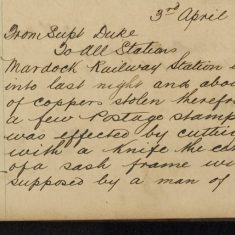 3rd April
From Supt Duke
To All Stations
Mardock Railway Station
into last night and abou
of coppers stolen therefro
a few Postage stamp
was effected by cuttin
with a knife the
of a sash frame
supposed by a man of